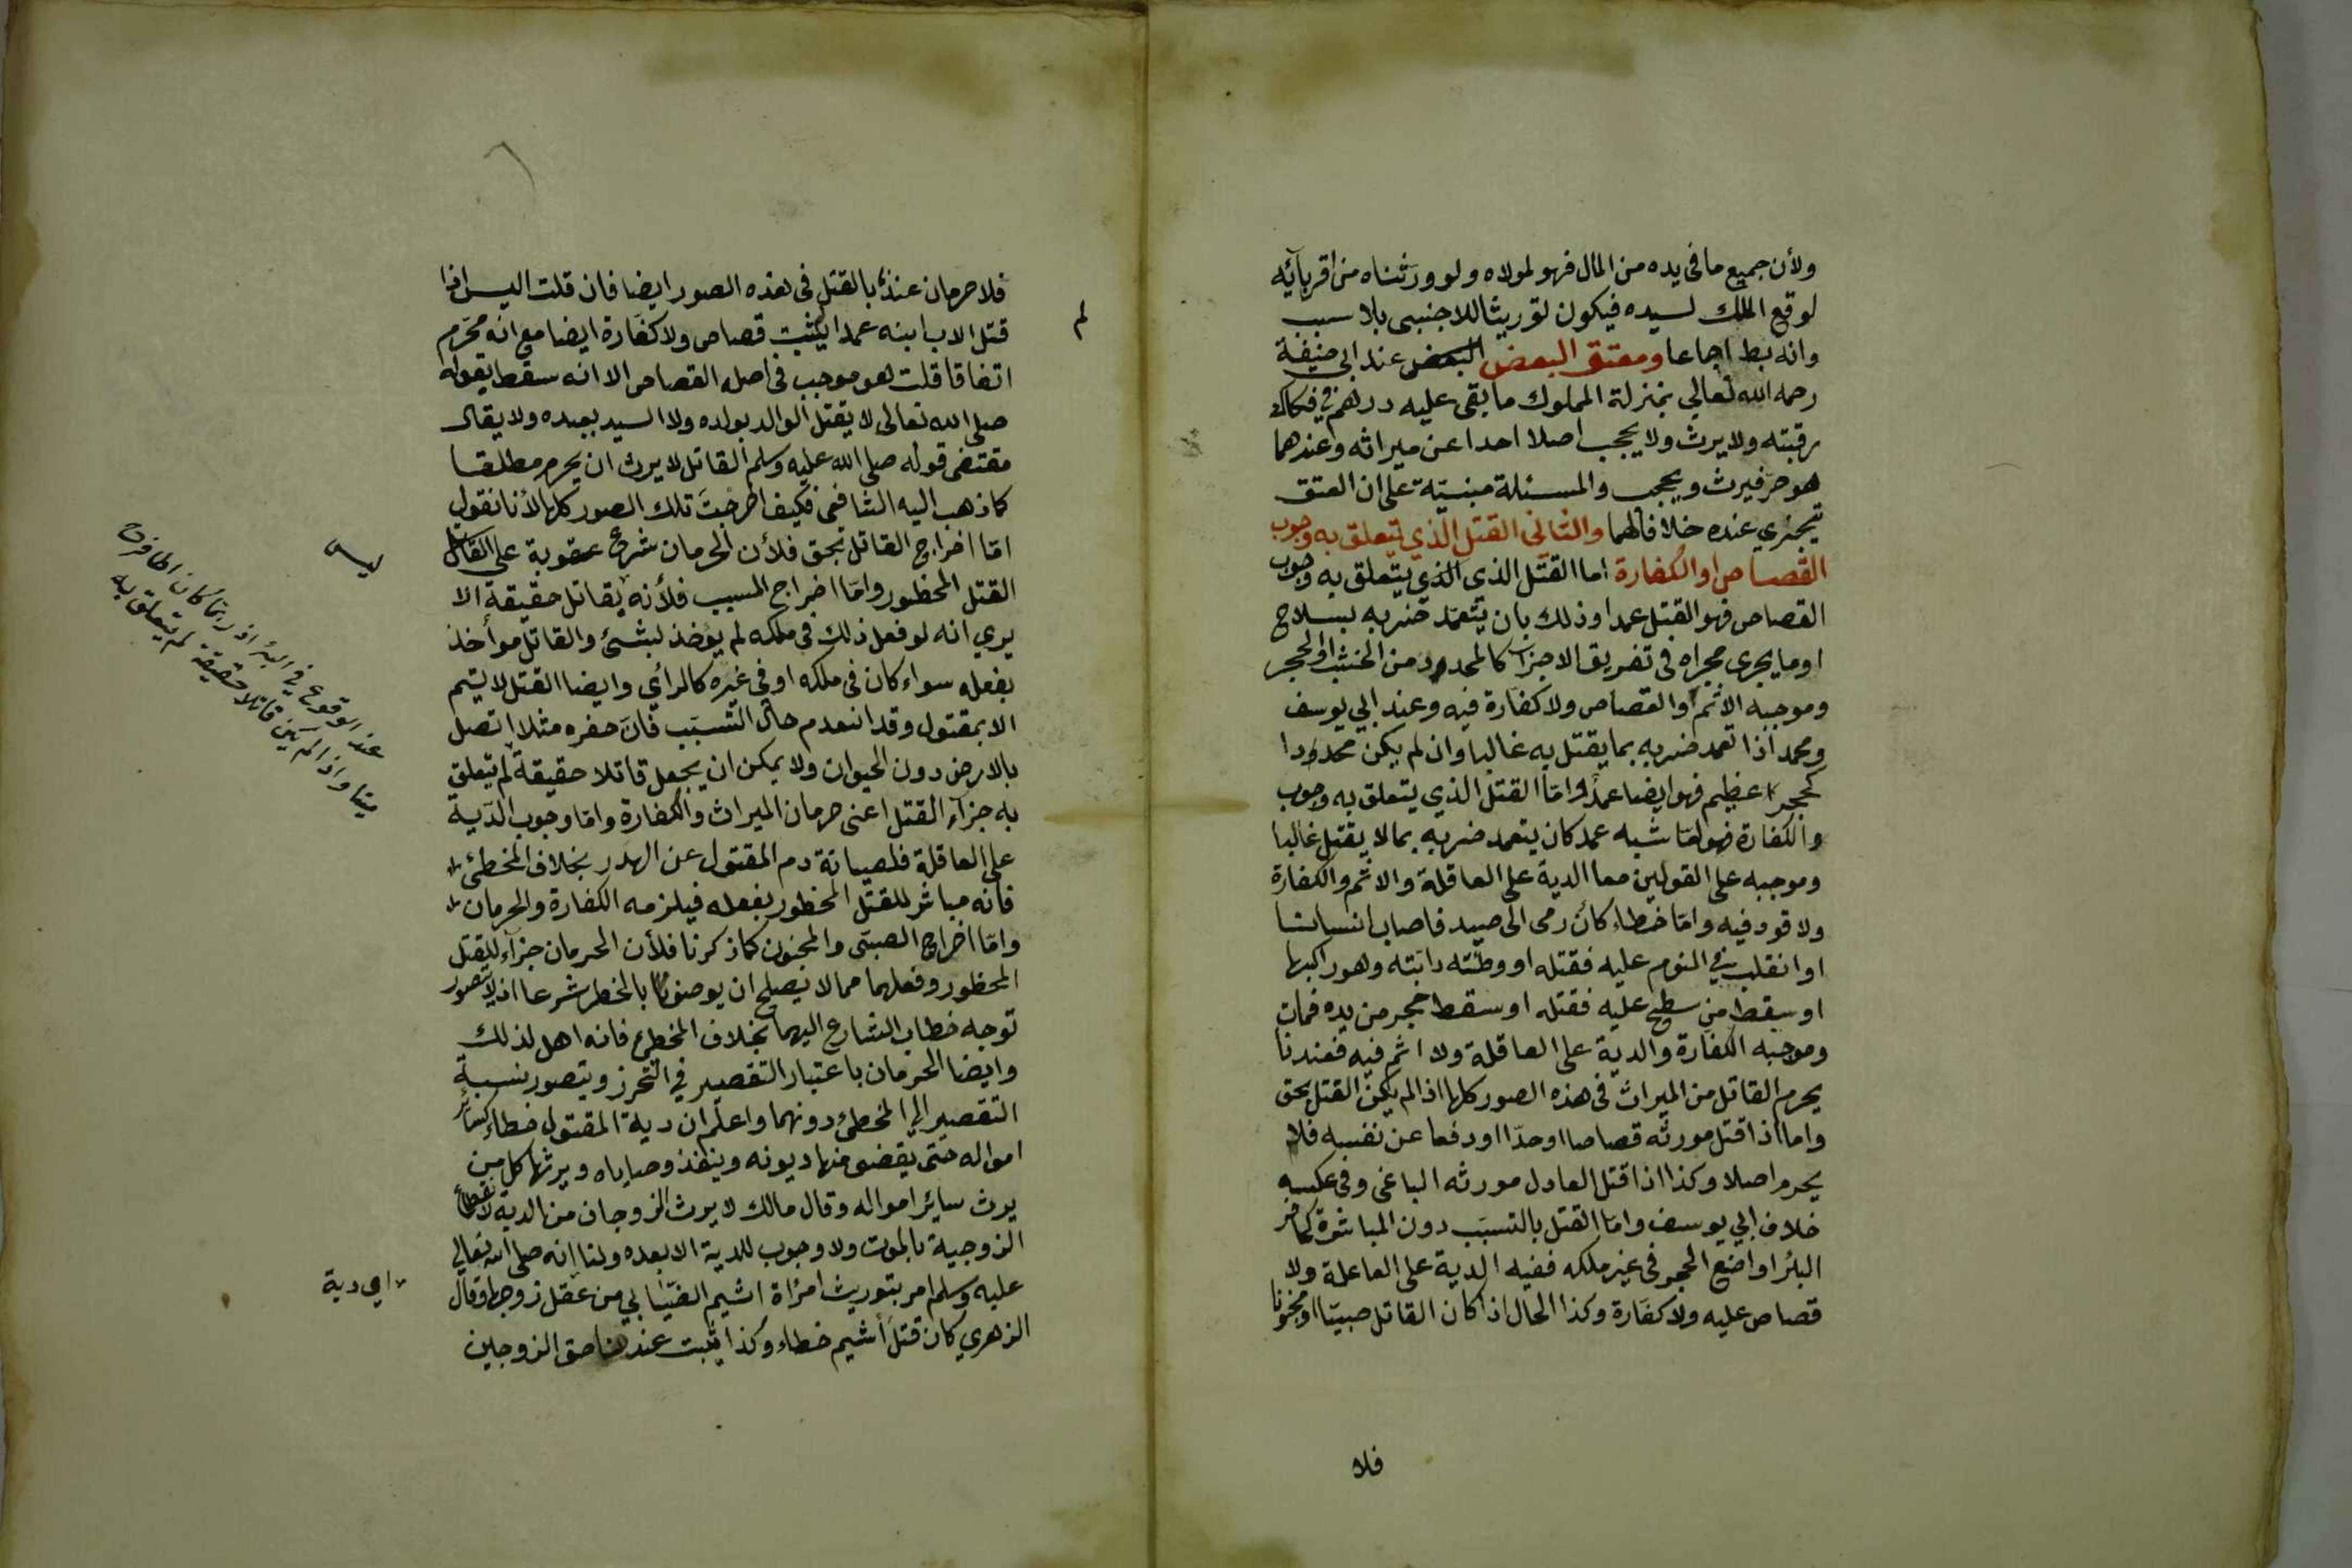 ولأن جميع ما فى يده من المال فهو لمولاه ولو ورثناه من اقربآئه
لوقع الملك لسيده فيكون توريثا للاجنبى بلا سبب
وانه بط اجماعا ومعتق البعض البعض عند ابى حنيفة
رحمه الله تعالي بمنزلة المملوك ما بقى عليه درهم في فكاك
رقبته ولا يرث ولا يحجب اصلا احدا عن ميراثه وعندهما
هو حر فيرث ويحجب والمسئلة مبنيّة على ان العتق
يتجزي عنده خلافا لهما والثانى القتل الذي يتعلق به وجوب
القصاص او الكفارة اما القتل الذى الذي يتعلق به وجوب
القصاص فهو القتل عمدا وذلك بان يتعمّد ضربه بسلاح
او ما يجرى مجراه فى تفريق الاجزآء كالمحدود من الخشب او الحجر
وموجبه الاثم والقصاص ولا كفارة فيه وعند ابي يوسف
ومحمد اذا تعمد ضربه بما يقتل به غالبا وان لم يكن محدودا
كحجر عظيم فهو ايضا عمد واما القتل الذي يتعلق به وجوب
والكفارة فهو امّا شبه عمد كان يتعمد ضربه بما لا يقتل غالبا
وموجبه على القولين معا الدية على العاقلة والاثم والكفارة
ولا قود فيه وامّا خطاء كأن رمى الى صيد فاصاب انسانا
او انقلب في النوم عليه فقتله او وطئته دابّته وهو راكبها
او سقط من سطح عليه فقتله او سقط حجر من يده فمات
وموجبه الكفارة والدية على العاقلة ولا اثم فيه فعندنا
يحرم القاتل من الميراث فى هذه الصور كلها اذا لم يكن القتل بحق
واما اذا قتل مورثه قصاصا او حدّا او دفعا عن نفسه فلا
يحرم اصلا وكذا اذا قتل العادل مورثه الباغى وفى عكسه
خلاف ابي يوسف وامّا القتل بالتسبّب دون المباشرة كحافر
البئر او واضع الحجر فى غير ملكه ففيه الدية على العاقلة ولا
قصاص عليه ولا كفّارة وكذا الحال اذا كان القاتل صبيّا او مجنونا
فلا
فلا حرمان عندنا بالقتل فى هذه الصور ايضا فان قلت اليس اذا
قتل الاب ابنه عمدا يثبت قصاص ولا كفارة ايضا مع انه محرّم
لم
اتفاقا قلت هو موجب فى اصله القصاص الا انه سقط بقوله
صلى الله تعالى لا يقتل الوالد بولده ولا السيد بعبده ولا يقال
مقتضى قوله صلى الله عليه وسلم القاتل لا يرث ان يحرم مطلقا
كما ذهب اليه الشافعى فكيف اخرجت تلك الصور كلها لأنا نقول
امّا اخراج القاتل بحق فلأن الحرمان شرع عقوبة على القاتل
القتل المحظور وامّا اخراج المسبب فلأنه بقاتل حقيقة الا
ليس
يري انه لو فعل ذلك فى ملكه لم يؤخذ لبشئ والقاتل مواخذ
بفعله سواء كان فى ملكه او فى غيره كالرأي وايضا القتل لا يتم
الا بمقتول وقد انعدم حال التسبّب فانّ حفره مثلا اتصل
بالارض دون الحيوان ولا يمكن ان يجعل قاتلا حقيقة لم يتعلق
عند الوقوع في البئر اذ ربما كان الحافر ح
ميتا واذا لم يكن قاتلا حقيقة لم يتعلق به
به جزآء القتل اعنى حرمان الميراث والكفارة وامّا وجوب الدّية
على العاقلة فلصيانة دم المقتول عن الهدر بخلاف المخطئ
فانه مباشر للقتل المحظور بفعله فيلزمه الكفارة والحرمان
وامّا اخراج الصبّى والمجنون كما ذكرنا فلأن الحرمان جزآء للقتل
المحظور وفعلهما مما لا يصلح ان يوصف بالحظر شرعا اذ لا يتصور
توجه خطاب الشارع اليهما بخلاف المخطئ فانه اهل لذلك
وايضا الحرمان باعتبار التقصير في التحرز ويتصور نسبة
التقصير الي المخطئ دونهما واعلم ان دية المقتول خطاء كسائر
امواله حتى يقضى منها ديونه وينفذ وصاياه ويرثها كل من
يرث سائر امواله وقال مالك لا يرث الزوجان من الدية لانقطاع
الزوجية بالموت ولا وجوب للدية الا بعده ولنا انه صلى الله تعالي
عليه وسلم امر بتوريث امرأة اشيم الضبابي من عقل زوجها وقال
اي دية
الزهري كان قتل أشيم خطاء وكذا يثبت عندنا حق الزوجين